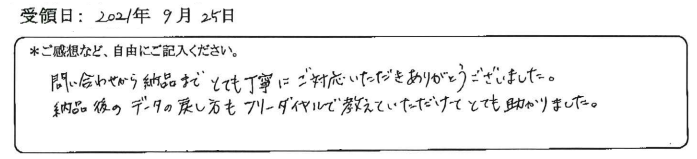 受領日: 2021年 9月 25日
*ご感想など、自由にご記入ください。
問い合わせから納品まで とても丁寧に ご対応いただきありがとうございました。
納品後の データの戻し方も フリーダイヤルで教えていただけて とても助かりました。